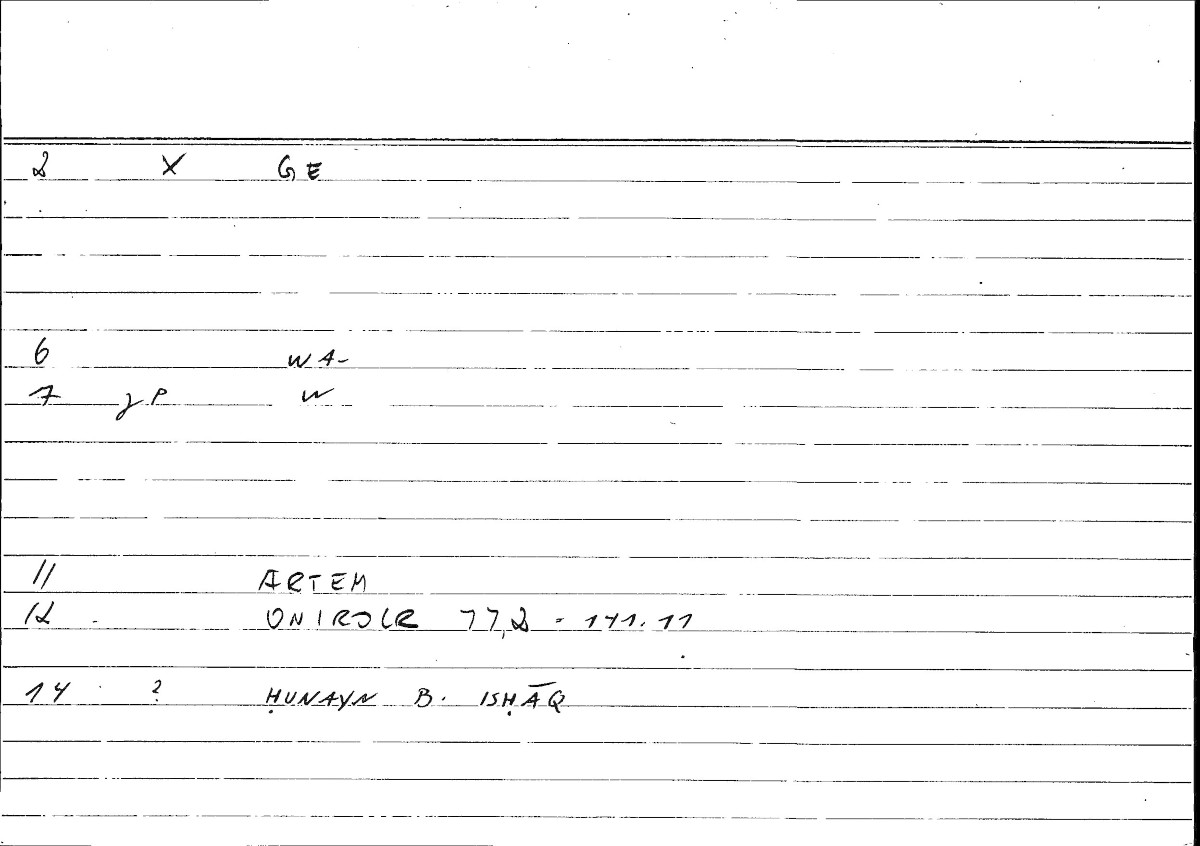 2 X GE
6 WA-
7 γP W
11 ARTEM
12 ONIROCR 77,2 - 141.11
14 ? ḤUNAYN B. ISḤĀQ